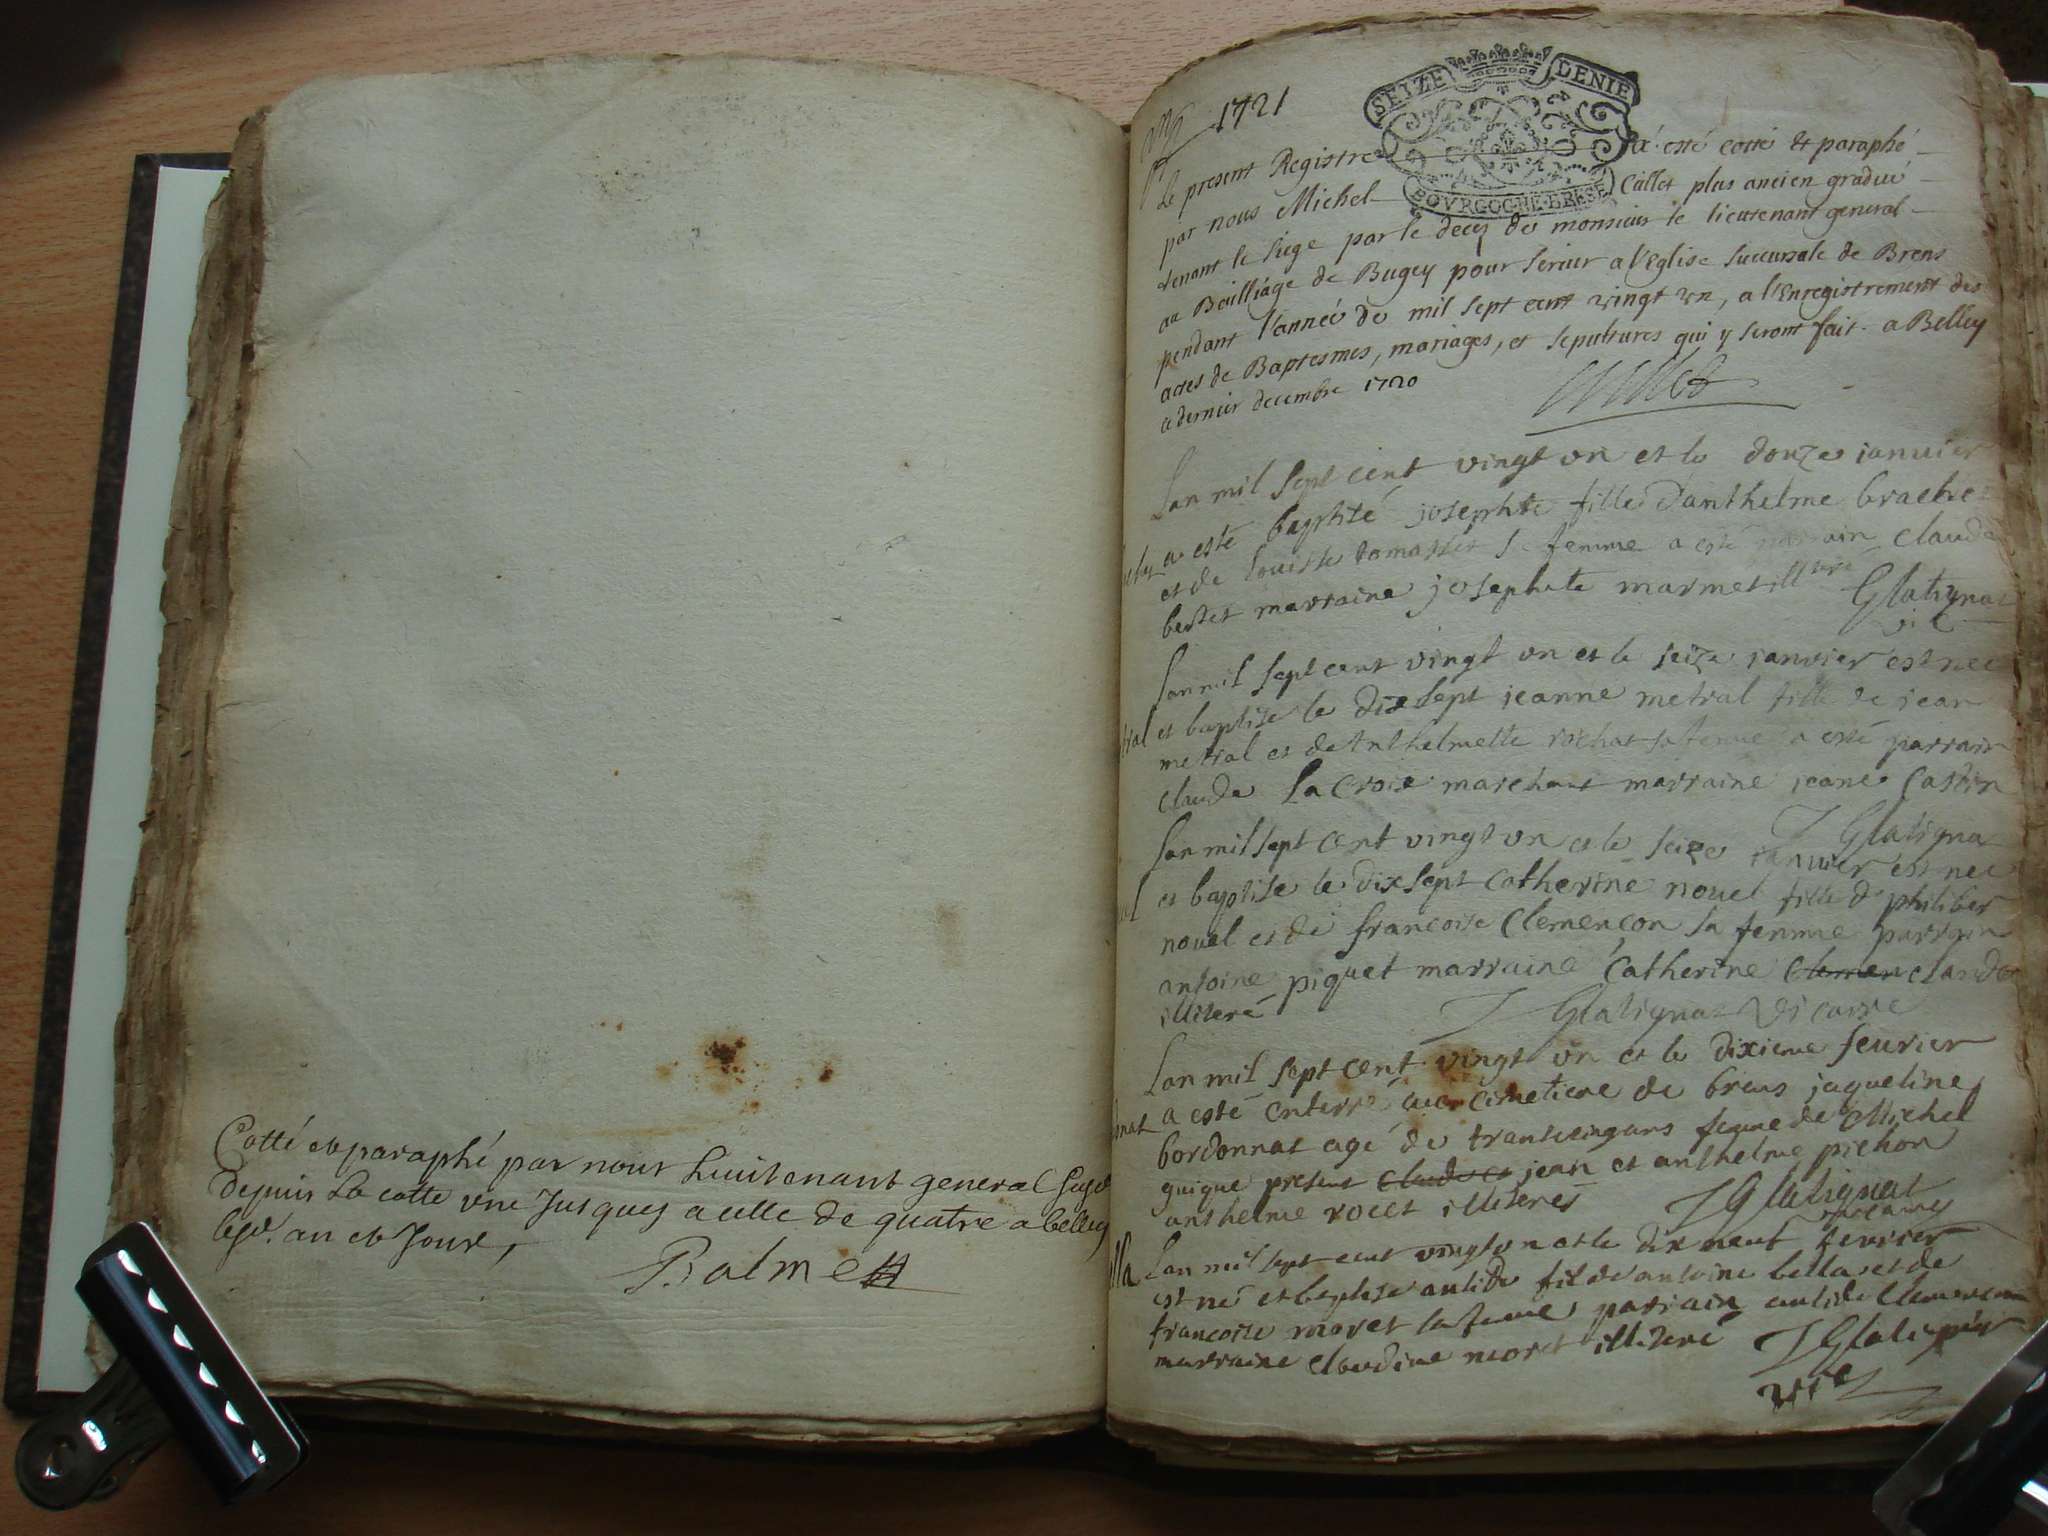 Cotté et paraphé par nous Lieutenant general
depuis la cotte une Jusques a celle de quatre a belley
an et Jour,
Balme
1721
SEIZE DENIE
BOVRGOGNE BRESSE
Le present Registre a esté cotté et paraphé
par nous Michel Callet plus ancien gradué
tenant le siege par le decez de monsieur le lieutenant general
au Bailliage de Bugey pour servir a l'Eglise succursale de Brens
pendant l'année de mil sept cent vingt un, a l'Enregistrement des
actes de Baptesmes, mariages, et sepultures qui y seront fait. a Belley
a dernier decembre 1720
Callet
Lan mil sept cent vingt un et le douze ianvier
a esté baptisé josephte fille danthelme
et de louisse femme a esté parrain claude
marraine josephte Glatignat
vic
Lan mil sept cent vingt un et le seize janvier est nee
et baptise le dixsept jeanne metral fille de jean
metral et de Anthelmette rochat sa femme a esté parrain
claude La Croix marchant marraine jeane
J Glatignat
Lan mil sept cent vingt un et le seize ianvier est nee
et baptise le dixsept catherine nouel fille d philiber
nouel et de francoise Clemençon sa femme parrain
antoine piquet marraine Catherine clemen
illiteré J Glatignat vicaire
Lan mil sept cent vingt un et le dixieme feurier
a esté enterré au cimetiere de brens jaqueline
bordonnat agé de trantecinq ans femme de Michel
guigue present claude et jean et anthelme pichon
anthelme rocet illiterés J Glatignat
Lan mil sept cent vingt un et le dix neuf fevrier
est né et baptise antide fil de antoine bella et de
francoise moret sa femme parrain antide
marraine claudine moret illiteré J Glatignat